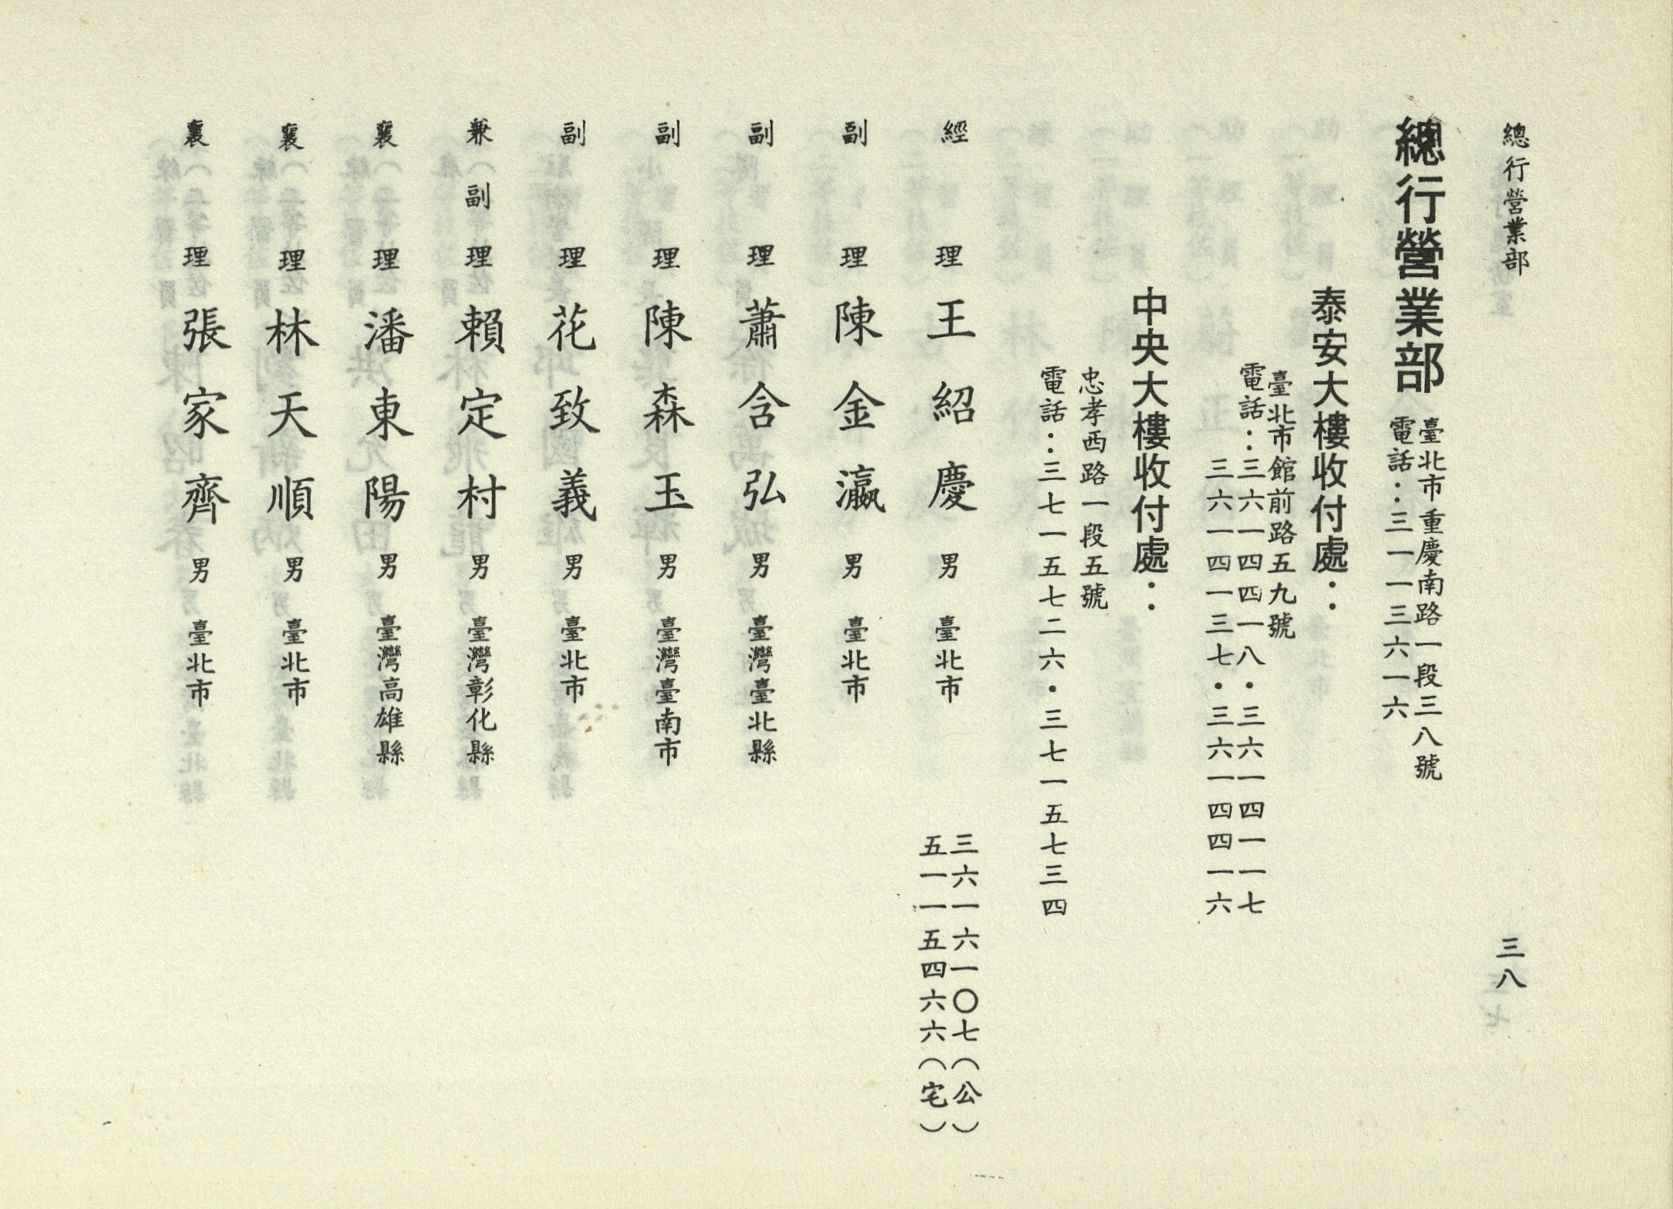 總行營業部
三八
總行營業部
臺北市重慶南路一段三八號
電話：三一一三六一六
泰安大樓收付處：
臺北市館前路五九號
電話：三六一四四一八・三六一四一一七
三六一四一三七・三六一四四一六
中央大樓收付處：
忠孝西路一段五號
電話：三七一五七二六・三七一五七三四
經理 王紹慶 男 臺北市
三六一六一〇七（公）
五一一五四六六（宅）
副理 陳金瀛 男 臺北市
副理 蕭含弘 男 臺灣臺北縣
副理 陳森玉 男 臺灣臺南市
副理 花致義 男 臺北市
兼副理 賴定村 男 臺灣彰化縣
襄理 潘東陽 男 臺灣高雄縣
襄理 林天順 男 臺北市
襄理 張家齊 男 臺北市